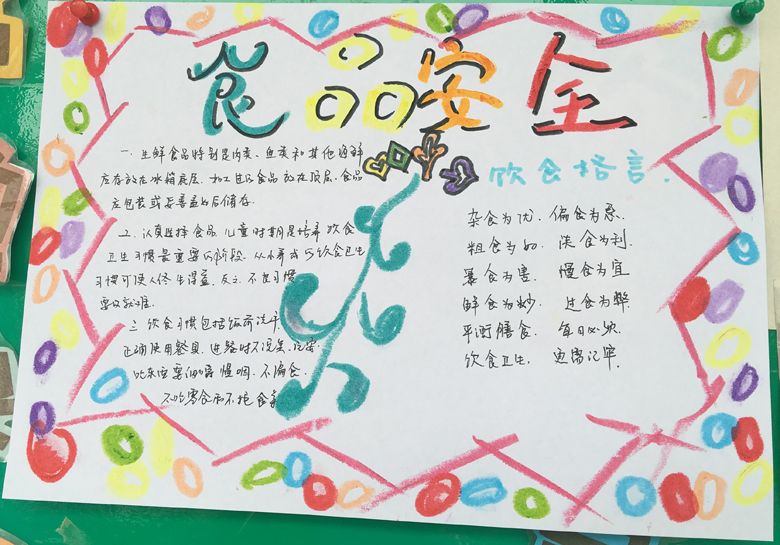 食品安全
一、生鲜食品特别是肉类、鱼类和其他海鲜
应存放在冰箱底层,加工包心食品放在顶层,食品
应包装或妥善盖好后储存.
二、认真选择食品,儿童时期是培养饮食
卫生习惯最重要的阶段,从小养成与饮食卫生
习惯可使人终生得益,反之,不良习惯
要改就难.
三、饮食习惯包括饭前洗手,
正确使用餐具,进餐时不说笑、
吃东西要细嚼慢咽,不偏食,
不吃零食和不挑食等
饮食格言.
杂食为优,偏食为忌,
粗食为好,淡食为利,
暴食为害,慢食为宜
鲜食为妙,过食为弊.
平衡膳食,每日必须,
饮食卫生,更需记牢.